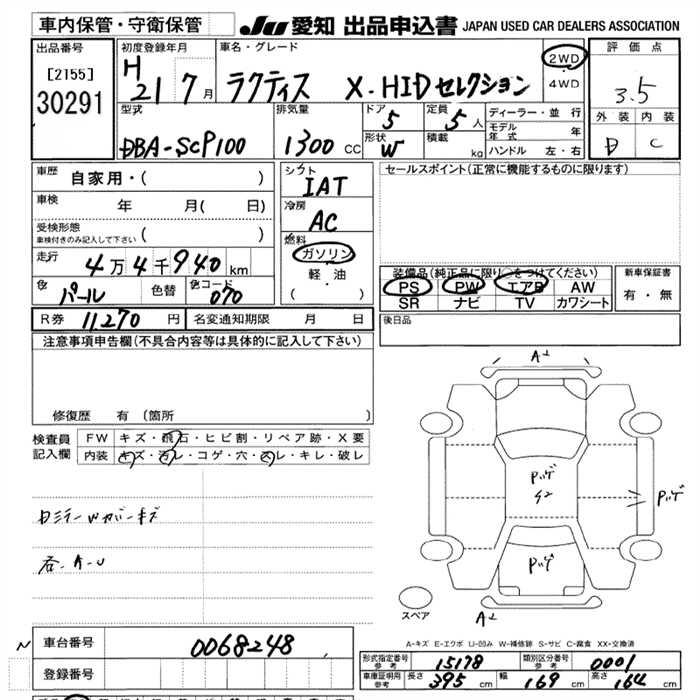 車内保管・守衛保管
JU 愛知 出品申込書 JAPAN USED CAR DEALERS ASSOCIATION
出品番号
[2155]
30291
初度登録年月
H 21 7 月
車名・グレード
ラクティス X-HIDセレクション
2WD
4WD
評価点
3.5
外装 内装
D C
型式
DBA-SCP100
排気量
1300 CC
ドア
5
定員
5 人
形状
W
積載
kg
ディーラー・並行
モデル年式 年
ハンドル 左・右
車歴
自家用・( )
車検
年 月( 日)
受検形態
車検付きのみ記入して下さい ( )
走行
4万4千940km
色
パール
色替
色コード
070
シフト
IAT
冷房
AC
燃料
ガソリン
軽油
( ・ )
セールスポイント(正常に機能するものに限ります)
装備品(純正品に限り○をつけてください)
PS PW エアB AW
SR ナビ TV カワシート
新車保証書
有・無
R券 11,270 円
名変通知期限 月 日
後日品
注意事項申告欄(不具合内容等は具体的に記入して下さい)
修復歴 有 (箇所 )
検査員記入欄
FW キズ・飛石・ヒビ割・リペア跡・X要
内装 キズ・汚レ・コゲ・穴・スレ・キレ・破レ
各-A-U
A2
Pハゲ
Pハゲ
Pハゲ
A2
スペア
A-キズ E-エクボ U-凹み W-補修跡 S-サビ C-腐食 XX-交換済
車台番号
0068248
登録番号
形式指定番号 参考
15178
類別区分番号 参考
0001
車庫証明用 参考
長さ 395 cm
幅 169 cm
高さ 164 cm